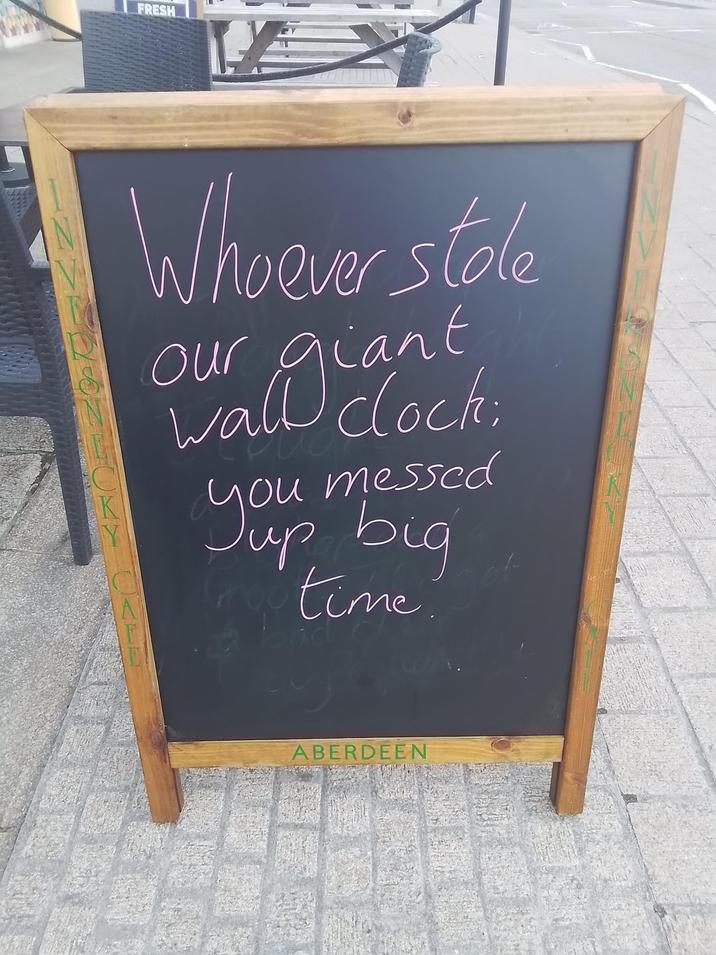 FRESH
Whoever stole
our giant
wall clock;
you messed
up big
time.
INVERSNECKY CAFE
INVERSNECKY CAFE
ABERDEEN